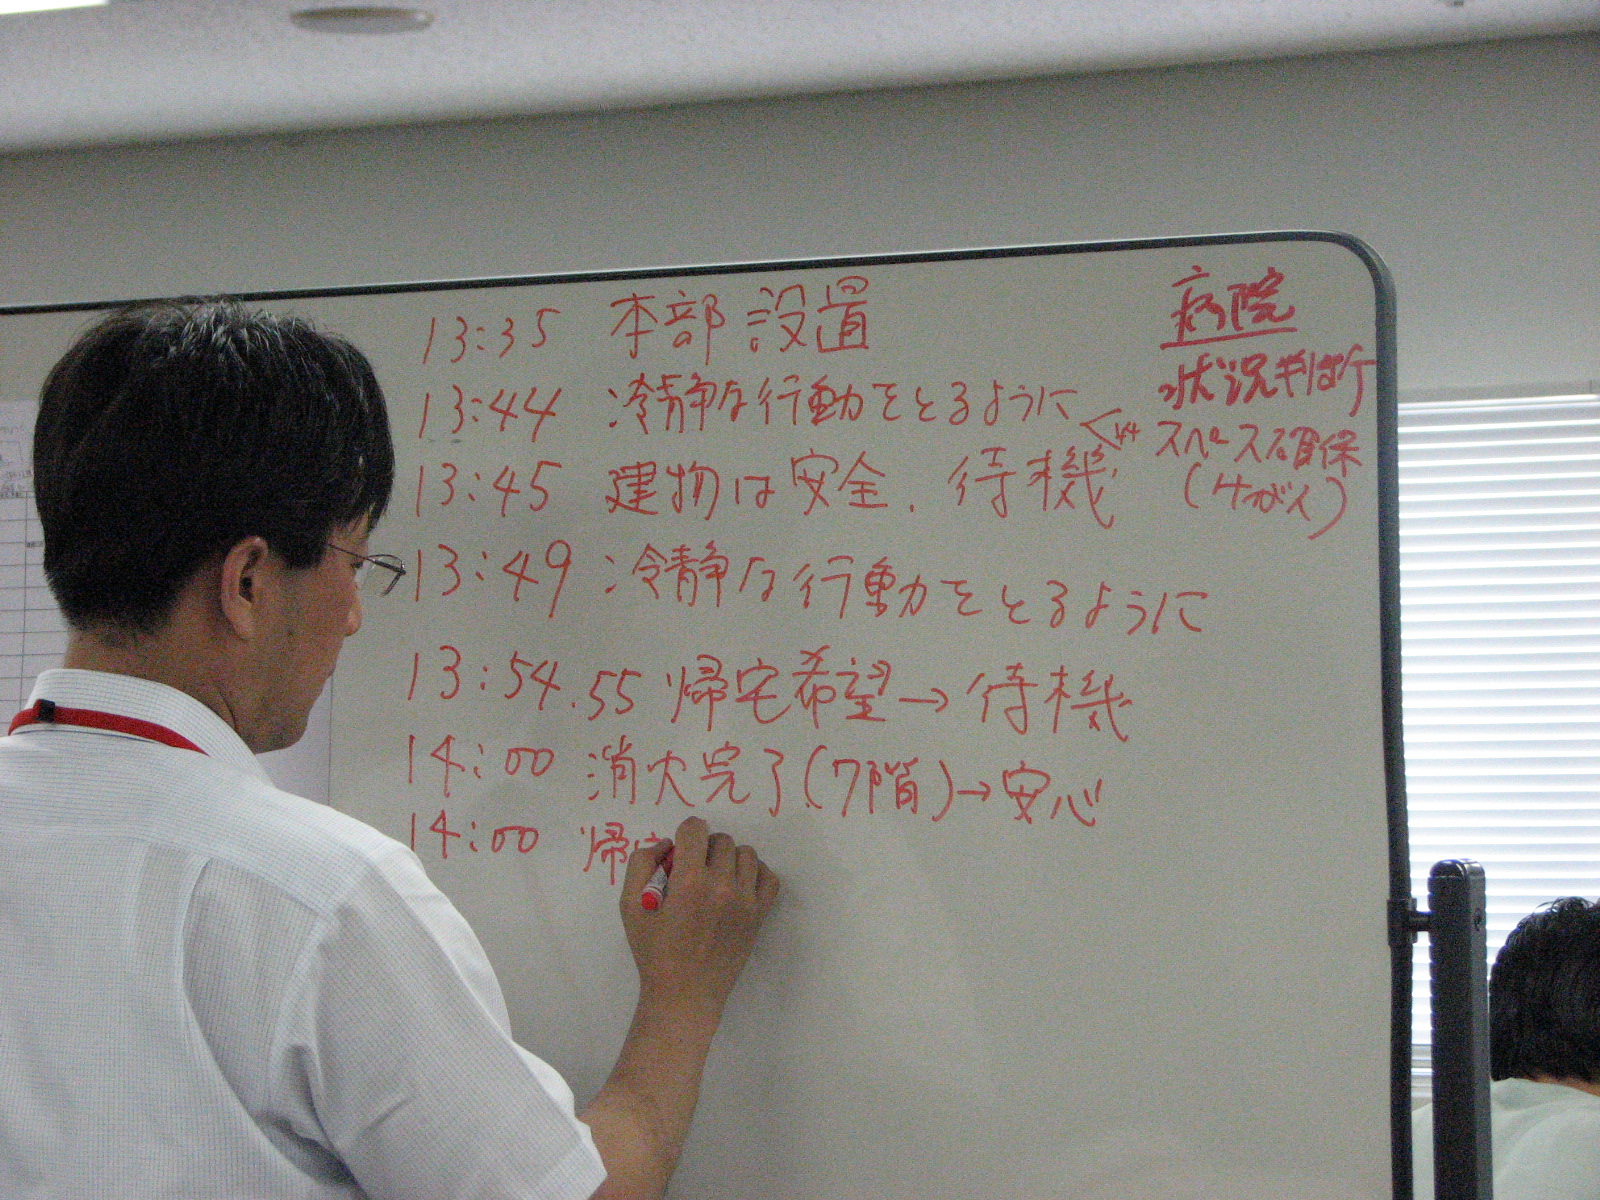 13:35 本部設置
13:44 冷静な行動をとるように
13:45 建物は安全. 待機
13:49 冷静な行動をとるように
13:54.55 帰宅希望→待機
14:00 消火完了(7階)→安心
14:00 帰宅
病院
状況判断
スペース確保
(ケガ人)